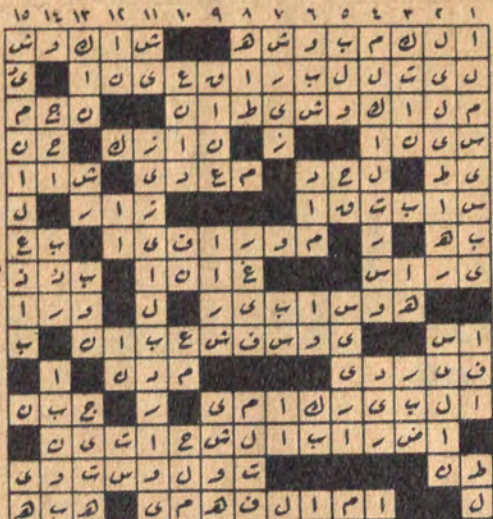 ١ ٢ ٣ ٤ ٥ ٦ ٧ ٨ ٩ ١٠ ١١ ١٢ ١٣ ١٤ ١٥
ا ل ك م ب و ش ه ش ا ك و ش
ل ى ت ل ل ب ر ا ق ع ى ن ا ى
م ل ا ك و ش ى ط ا ن ن ج م
س ى ن ا ز ن ا ز ك ج ن
ى ط ل ح د م ع د ى ش ا ا
س ا ب ت ق ا ز ا ر ل
ب ه ر م و ر ا ف ى ا ب ع
ى ر ا س غ ا ن ا ب ن ذ
ه و س ا ب ى ر ل و ر ا
ا س ى و س ف ش ع ب ا ن ب
ف ى ر د ى م د ن ا
ا ل ب ى ر ك ا م ى ر ج ب ن
ا ض ر ا ب ا ل ش ح ا ت ى ن
ط ن ت و ل و س ت و ى
ل ا م ا ل ف ه م ى ه ب ه